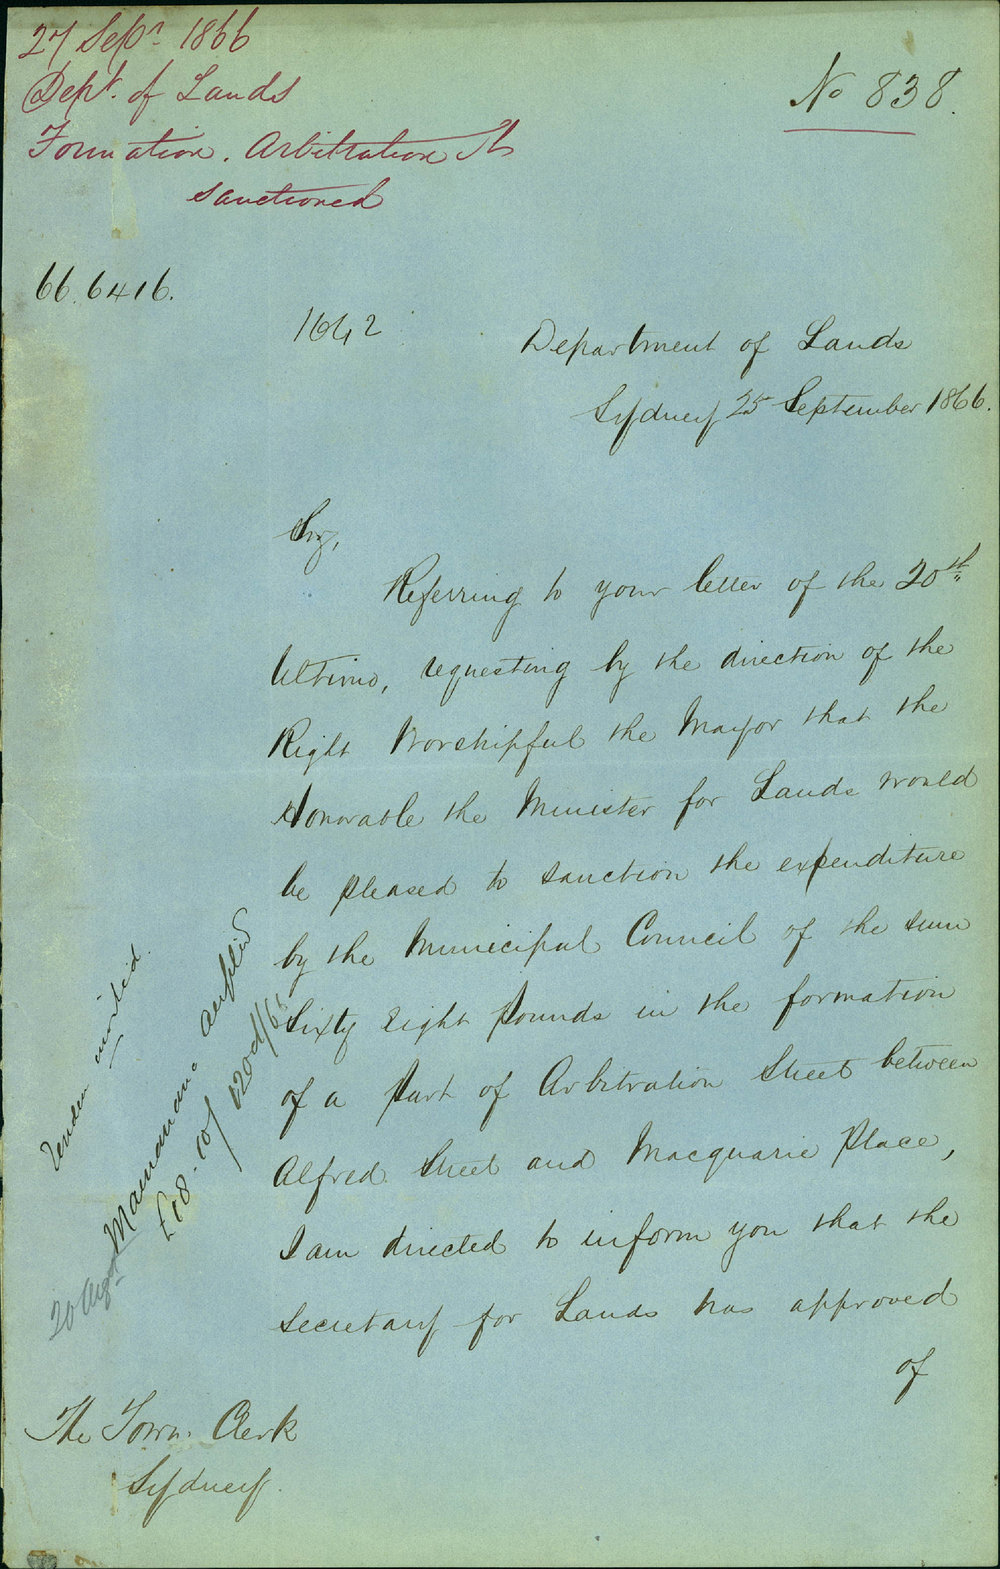 27 Sepr 1866
Dept. of Lands
Formation. Arbitration St
sanctioned
No 838.
66.6416.
1642
Department of Lands
Sydney 25 September 1866.
Sir,
Referring to your letter of the 20th
Ultimo, requesting by the direction of the
Right Worshipful the Mayor that the
Honorable the Minister for Lands would
be pleased to sanction the expenditure
by the Municipal Council of the sum
Sixty Eight Pounds in the formation
of a Part of Arbitration Street between
Alfred Street and Macquarie Place,
I am directed to inform you that the
Secretary for Lands has approved
of
Tender invited.
20 Augt
The Town Clerk
Sydney.